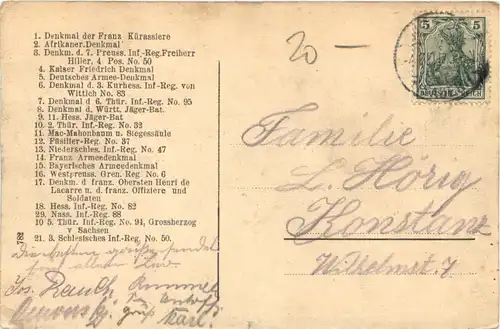 1. Denkmal der Franz Kürassiere
2. Afrikaner.Denkmal
3. Denkm. d. 7. Preuss. Inf.-Reg.Freiherr
Hiller, 4 Pos. No. 50
4. Kaiser Friedrich Denkmal
5. Deutsches Armee-Denkmal
6. Denkmal d. 3. Kurhess. Inf.-Reg. von
Wittich No. 83
7. Denkmal d 6. Thür. Inf.-Reg. No. 95
8. Denkmal d. Württ. Jäger-Bat.
9. 11. Hess. Jäger-Bat
10. 2. Thür. Inf.-Reg. No. 32
11. Mac-Mahonbaum u. Siegessäule
12. Füsilier-Reg. No. 37
13. Niederschles. Inf.-Reg. No. 47
14. Franz Armeedenkmal
15. Bayerisches Armeedenkmal
16. Westpreuss. Gren. Reg No. 6
17. Denkm. d franz. Obersten Henri de
Lacarre u. d. franz. Offiziere und
Soldaten
18. Hess. Inf-Reg. No. 82
29. Nass. Inf-Reg. 88
10 5. Thür. Inf-Reg. No. 91, Grossherzog
v Sachsen
21. 3. Schlesisches Inf.-Reg No. 50.
782
20 —
5 5
DEUTSCHES REICH
Familie
L. Hörig
Konstanz
Wilhelmst 7
Jos. Rauch
Karl.